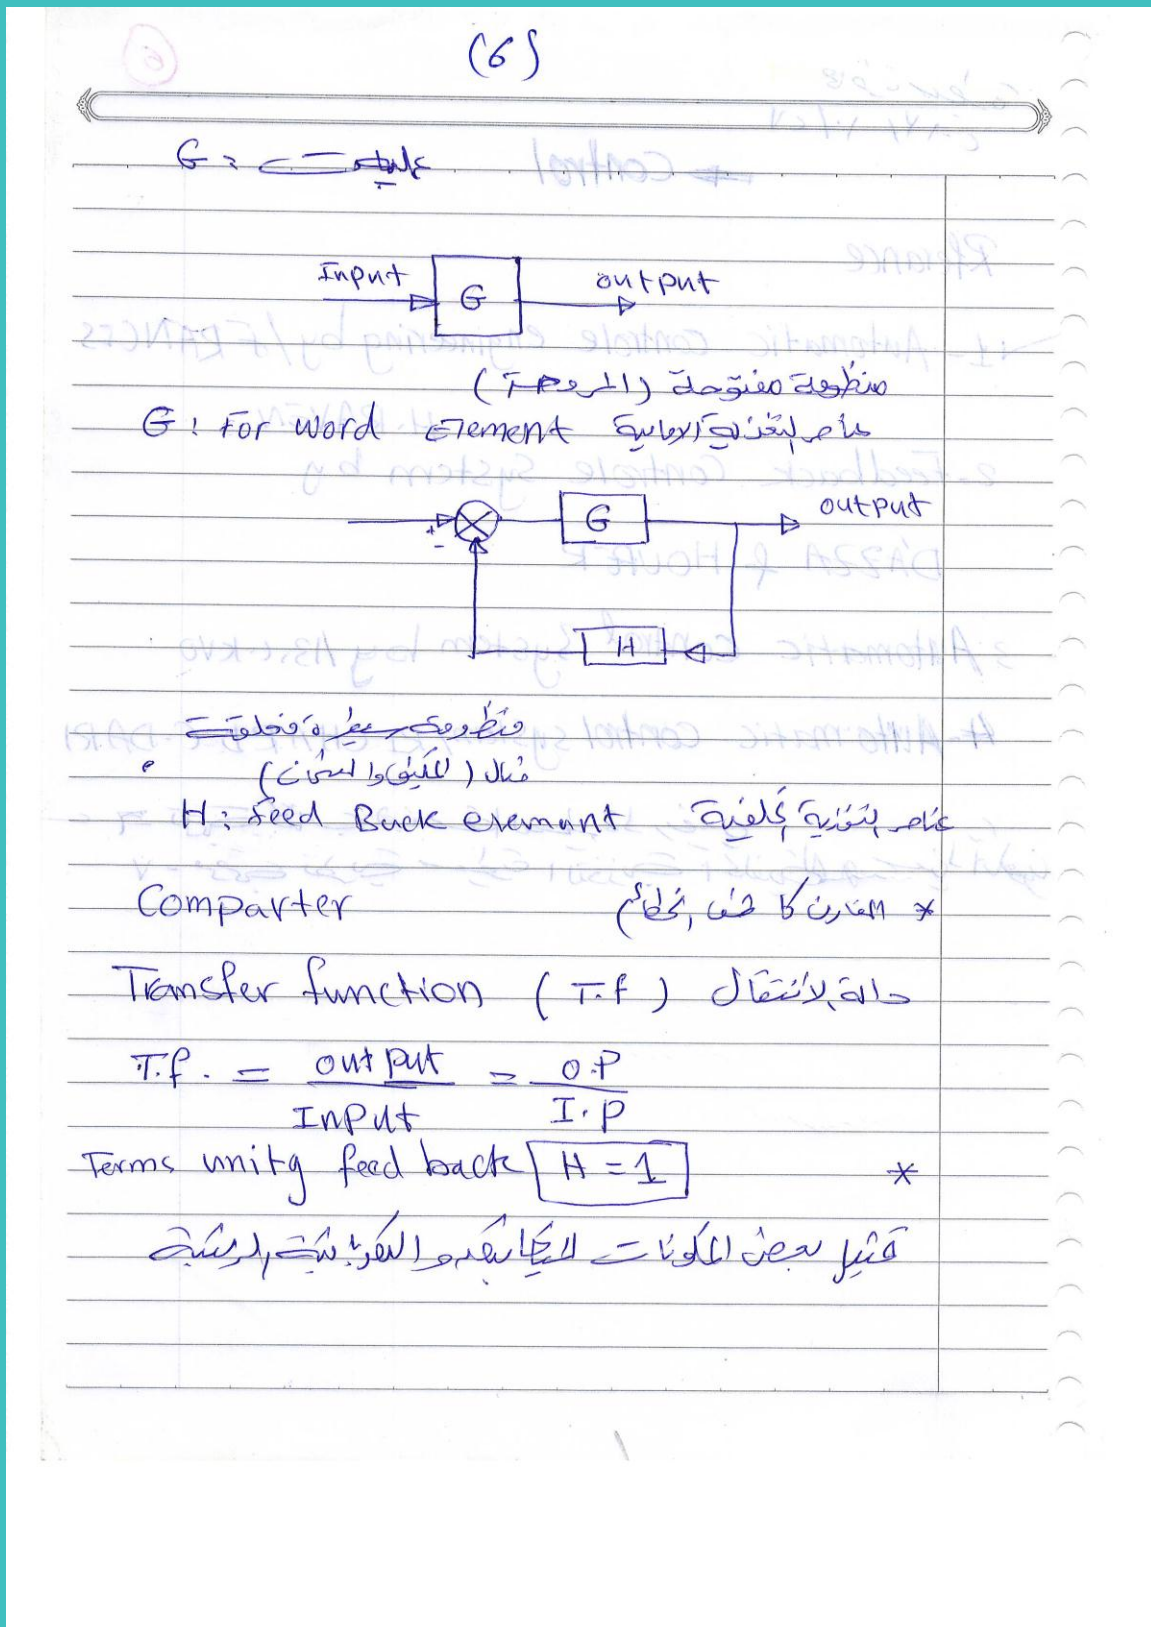 (6)
G : عمليات
Input G output
منظومة مفتوحة (المروحة)
G : For word Element عناصر التغذية الامامية
+ - G output
H
منظومة سيطرة مغلقة
مثال (المكيف والسخان)
H : feed Back elemant عناصر التغذية الخلفية
Comparter * المقارن كاشف الخطأ
Transfer function (T.f) دالة الأنتقال
T.f. = output / Input = O.P / I.P
Terms unity feed back H = 1 *
تمثيل بعض المكونات الميكانيكية و الكهربائية الرئيسية